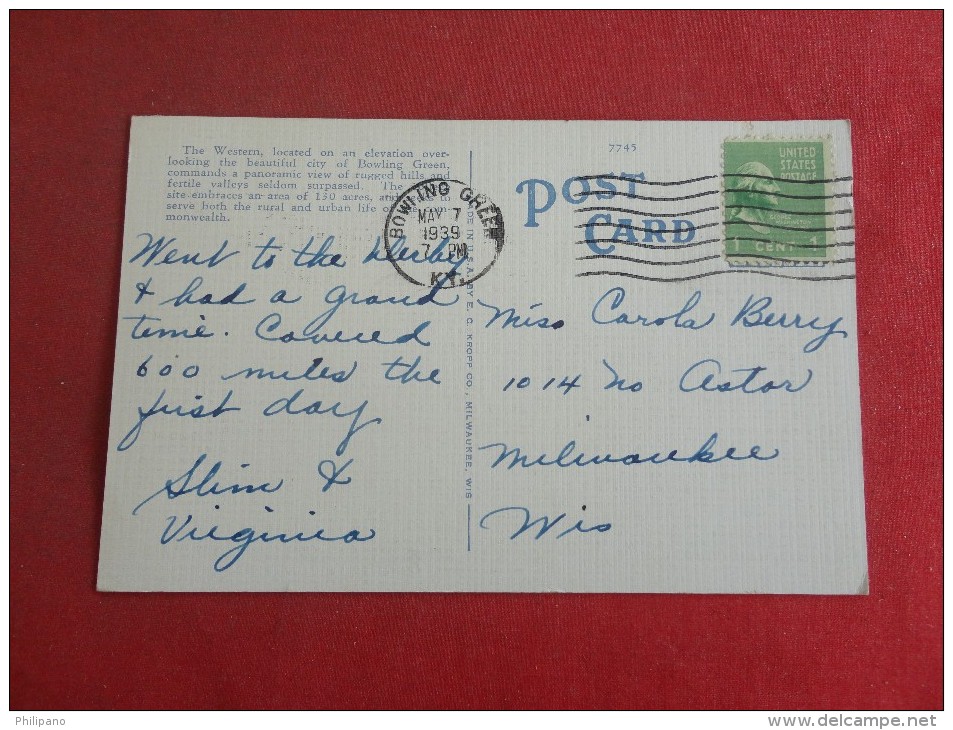 The Western, located on an elevation over-
looking the beautiful city of Bowling Green,
commands a panoramic view of rugged hills and
fertile valleys seldom surpassed. The
site embraces an area of 130 acres, and to
serve both the rural and urban life of
monwealth.
Went to the Derby
& had a grand
time. Covered
600 miles the
first day
Slim &
Virginia
BOWLING GREEN
MAY 7
1939
7 PM
KY.
MADE IN U.S.A. BY E. C. KROPP CO., MILWAUKEE, WIS
7745
POST
CARD
UNITED
STATES
POSTAGE
GEORGE
WASHINGTON
1 CENT 1
Miss Carola Berry
1014 No Astor
Milwaukee
Wis
Philipano
www.delcampe.net